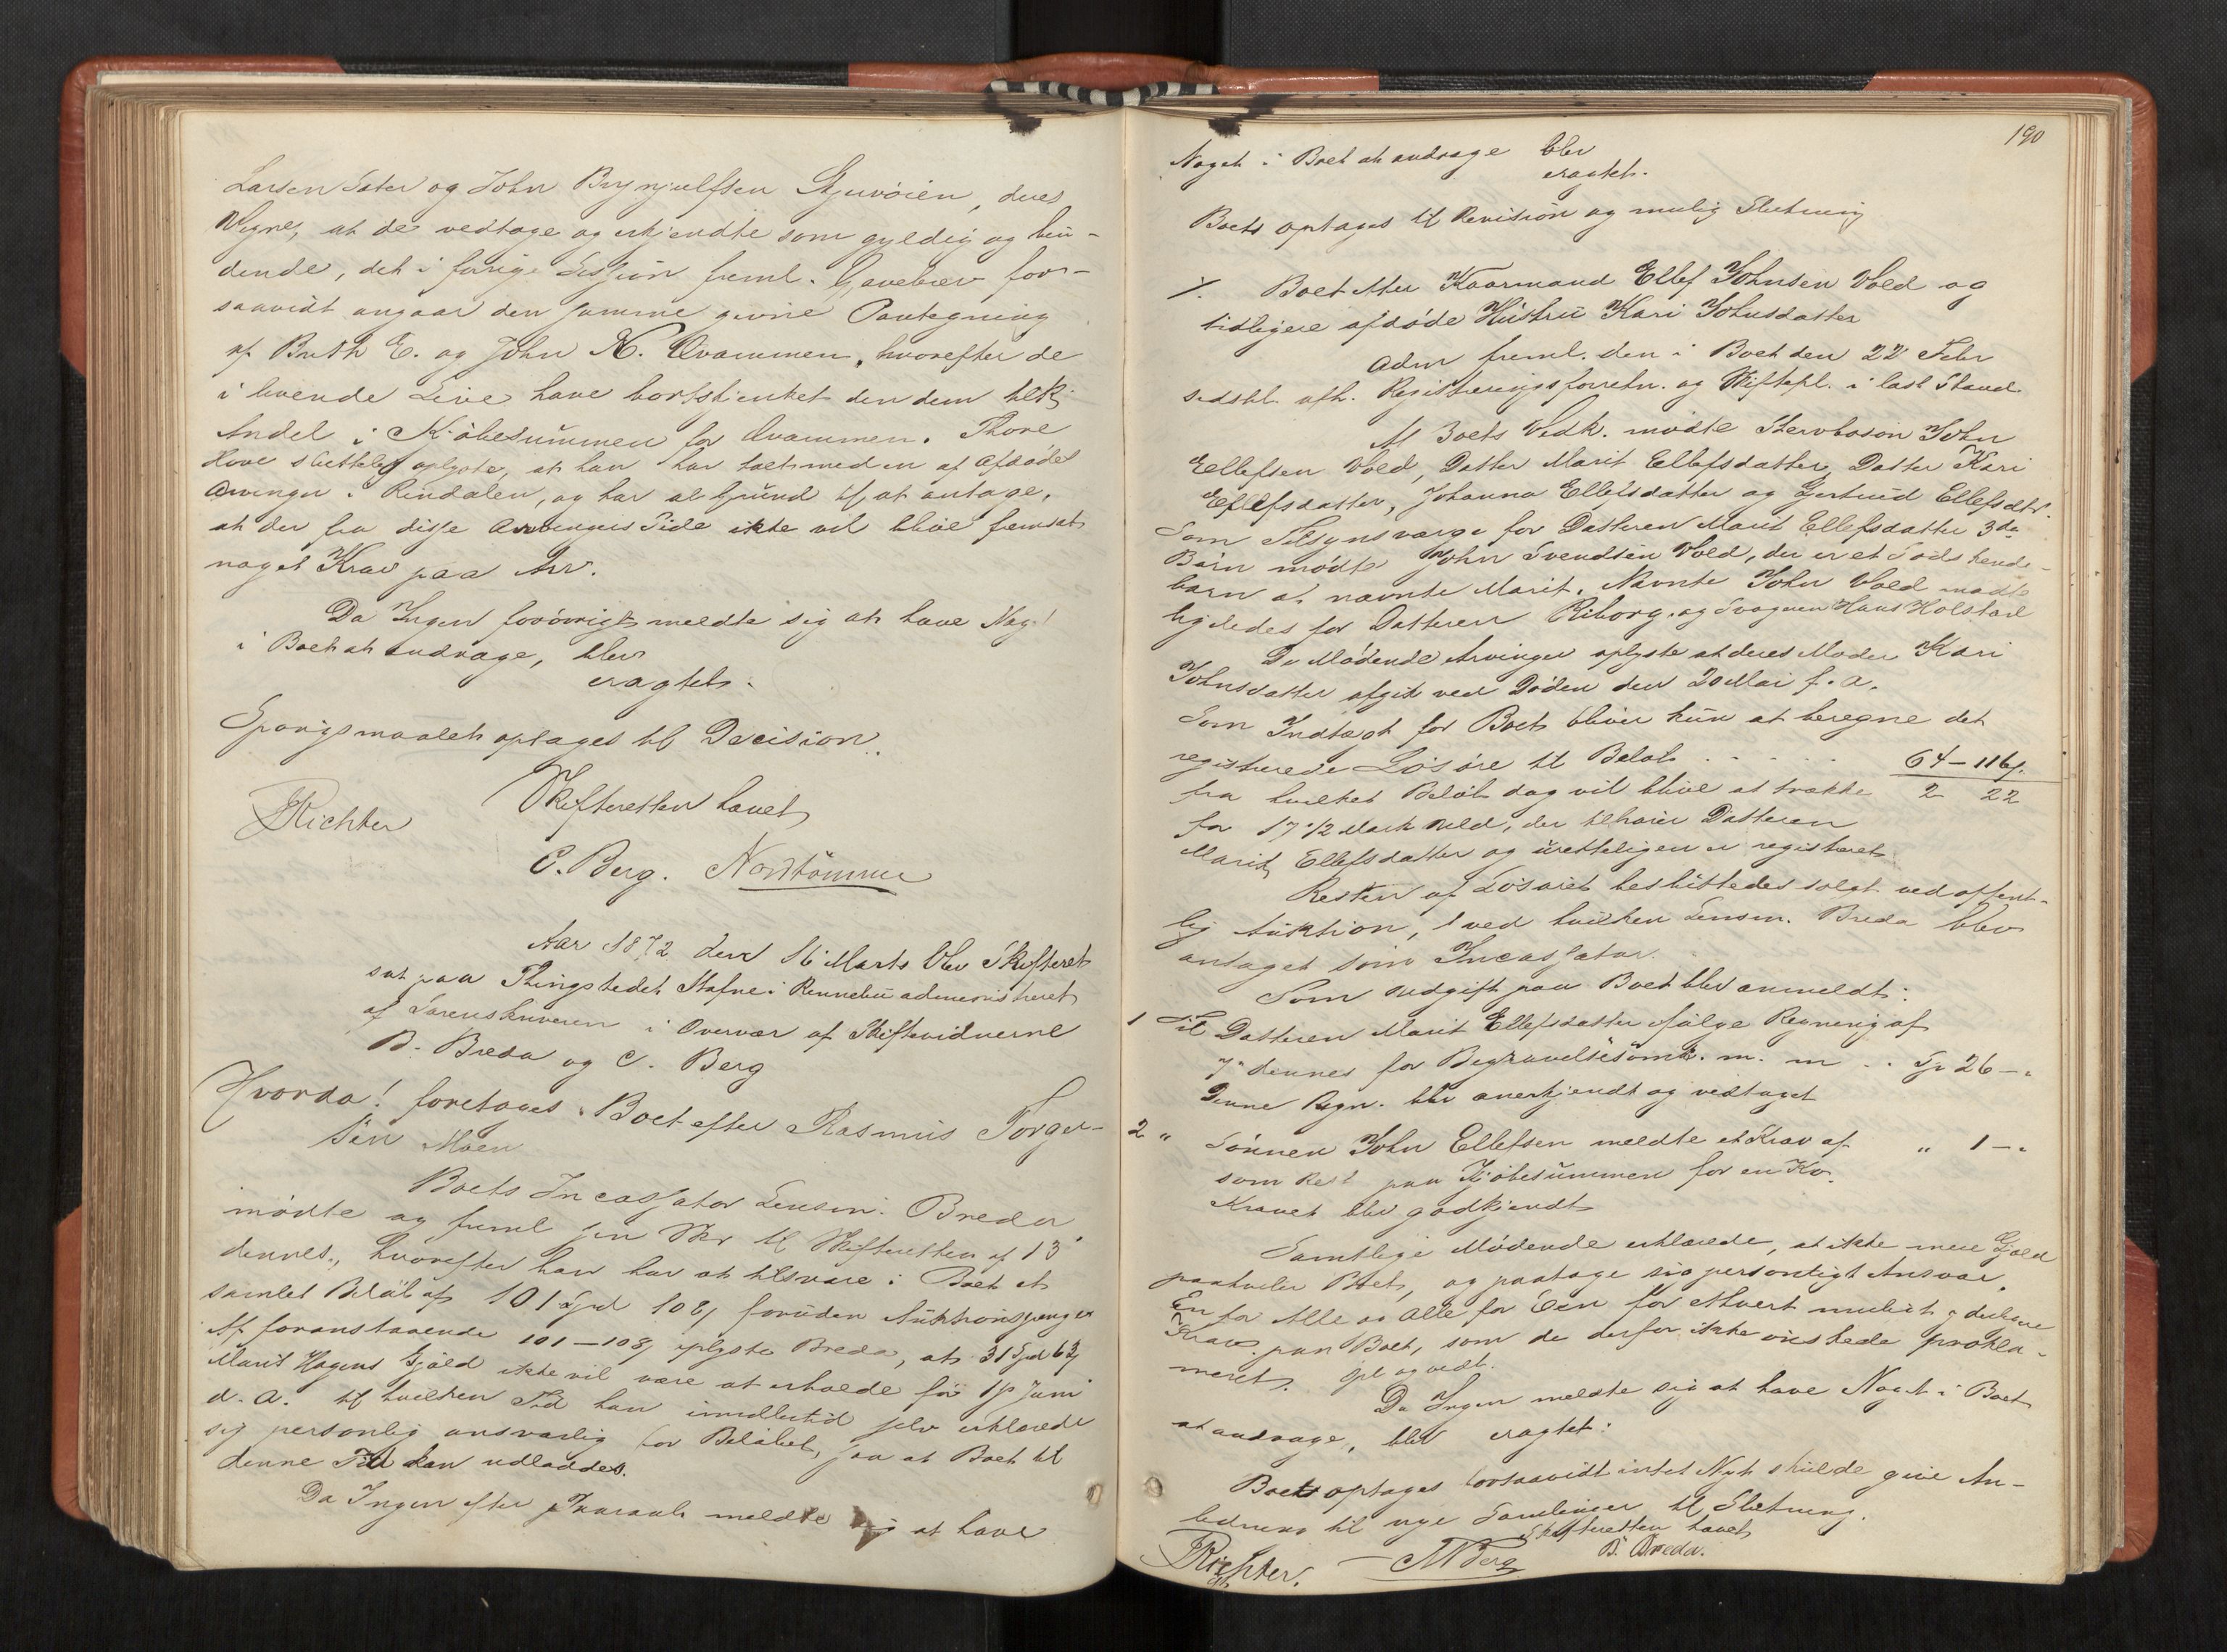 Larsen Sæter og John Brynjulfsen Gjuvöien, deres
Vegne, at de vedtage og erkjendte som gyldig og bin-
dende, det i forrige Session freml. Gavebrev for-
saavidt angaar den samme givne Paategning
af Brith E. og John N. Qvammen, hvorefter de
i levende Live have bortskjenket den dem tilk.
Andel i Kjöbesummen for Qvammen. Thore
Hove sluttelig oplyste, at han har talt med en af Afdödes
Arvinger i Rindalen, og har al Grund til at antage,
at der fra disse Arvingers Side ikke vil blive fremsat
noget Krav paa Arv.
Da Ingen forövrigt meldte sig at have Noget
i Boet at andrage, blev
eragtet:
Spörgsmaalet optages til Decision.
Skifteretten hævet
Richter
C. Berg. Nordtömme
Aar 1872 den 16 Marts blev Skifteret
sat paa Thingstedet Stafne i Rennebu administreret
af Sorenskriveren i Overvær af Skiftevidnerne
B. Breda og C. Berg
Hvorda! foretages Boet efter Rasmus Torger-
sen Moen
Boets Incassator Lensm. Breda
mödte og freml sin Skr til Skifteretten af 13'
dennes, hvorefter han har at tilsvare i Boet et
samlet Belöb af 101 Spd 108 s foruden Auktionspenger
Af foranstaaende 101-108 s oplyste Breda, at 31 Spd 63 s
Marit Hagens Gjæld ikke vil være at erholde för 1ste Juni
d. A. til hvilken Tid han imidlertid selv erklærede
sig personlig ansvarlig for Belöbet, saa at Boet til
denne Tid kan udloddes.
Da Ingen efter Paaraab meldte sig at have
190
Noget i Boet at andrage blev
eragtet.
Boet optages til Revision og mulig Slutning
%. Boet efter Kaarmand Ellef Johnsen Vold og
tidligere afdöde Hustru Kari Johnsdatter
Adm freml. den i Boet den 22 Febr
sidstl. afh. Registreringsforretn. og Skiftepl. i læst Stand
Af Boets Vedk. mödte Stervbosön John
Ellefsen Vold, Datter Marit Ellefsdatter, Datter Kari
Ellefsdatter, Johanna Ellefsdatter og Gertrud Ellefsdtr.
Som Tilsynsværge for Datteren Marit Ellefsdatter 3de
Börn mödte John Svendsen Vold, der er et Södskende-
barn af nævnte Marit. Nævnte John Vold mödte
ligeledes for Datteren Riborg og Svogeren Hans Holstad
De Mödende Arvinger oplyste at deres Moder Kari
Johnsdatter afgik ved Döden den 20 Mai f. A.
Som Indtægt for Boet bliver kun at beregne det
registrerede Lösöre til Belöb . . . . . 64 - 116 s.
fra hvilket Belöb dog vil blive at trække 2 22
for 17 1/2 Mark Uld, der tilhörer Datteren
Marit Ellefsdatter og uretteligen er registreret.
Resten af Lösöret besluttedes solgt ved offent-
lig Auktion, ved hvilken Lensm. Breda blev
antaget som Incassator.
Som Udgift paa Boet blev anmeldt:
1 Til Datteren Marit Ellefsdatter ifölge Regning af
7' dennes for Begravelsesomk. m. m . . Spd 26 - "
Denne Regn. blev anerkjendt og vedtaget
2 " Sönnen John Ellefsen meldte et Krav af " 1 - "
som Rest paa Kjöbesummen for en Ko.
Kravet blev godkjendt
Samtlige Mödende erklærede, at ikke mere Gjæld
paahviler Boet, og paatage sig personligt Ansvar
En for Alle og Alle for Een for ethvert muligt
Krav paa Boet, som de derfor ikke önskede prokla-
meret. Opl og vedt.
Da Ingen meldte sig at have Noget i Boet
at andrage, blev eragtet:
Boet optages forsaavidt intet Nyt skulde give An-
ledning til nye Samlinger til Slutning.
Skifteretten hævet
Richter. Berg B. Breda.